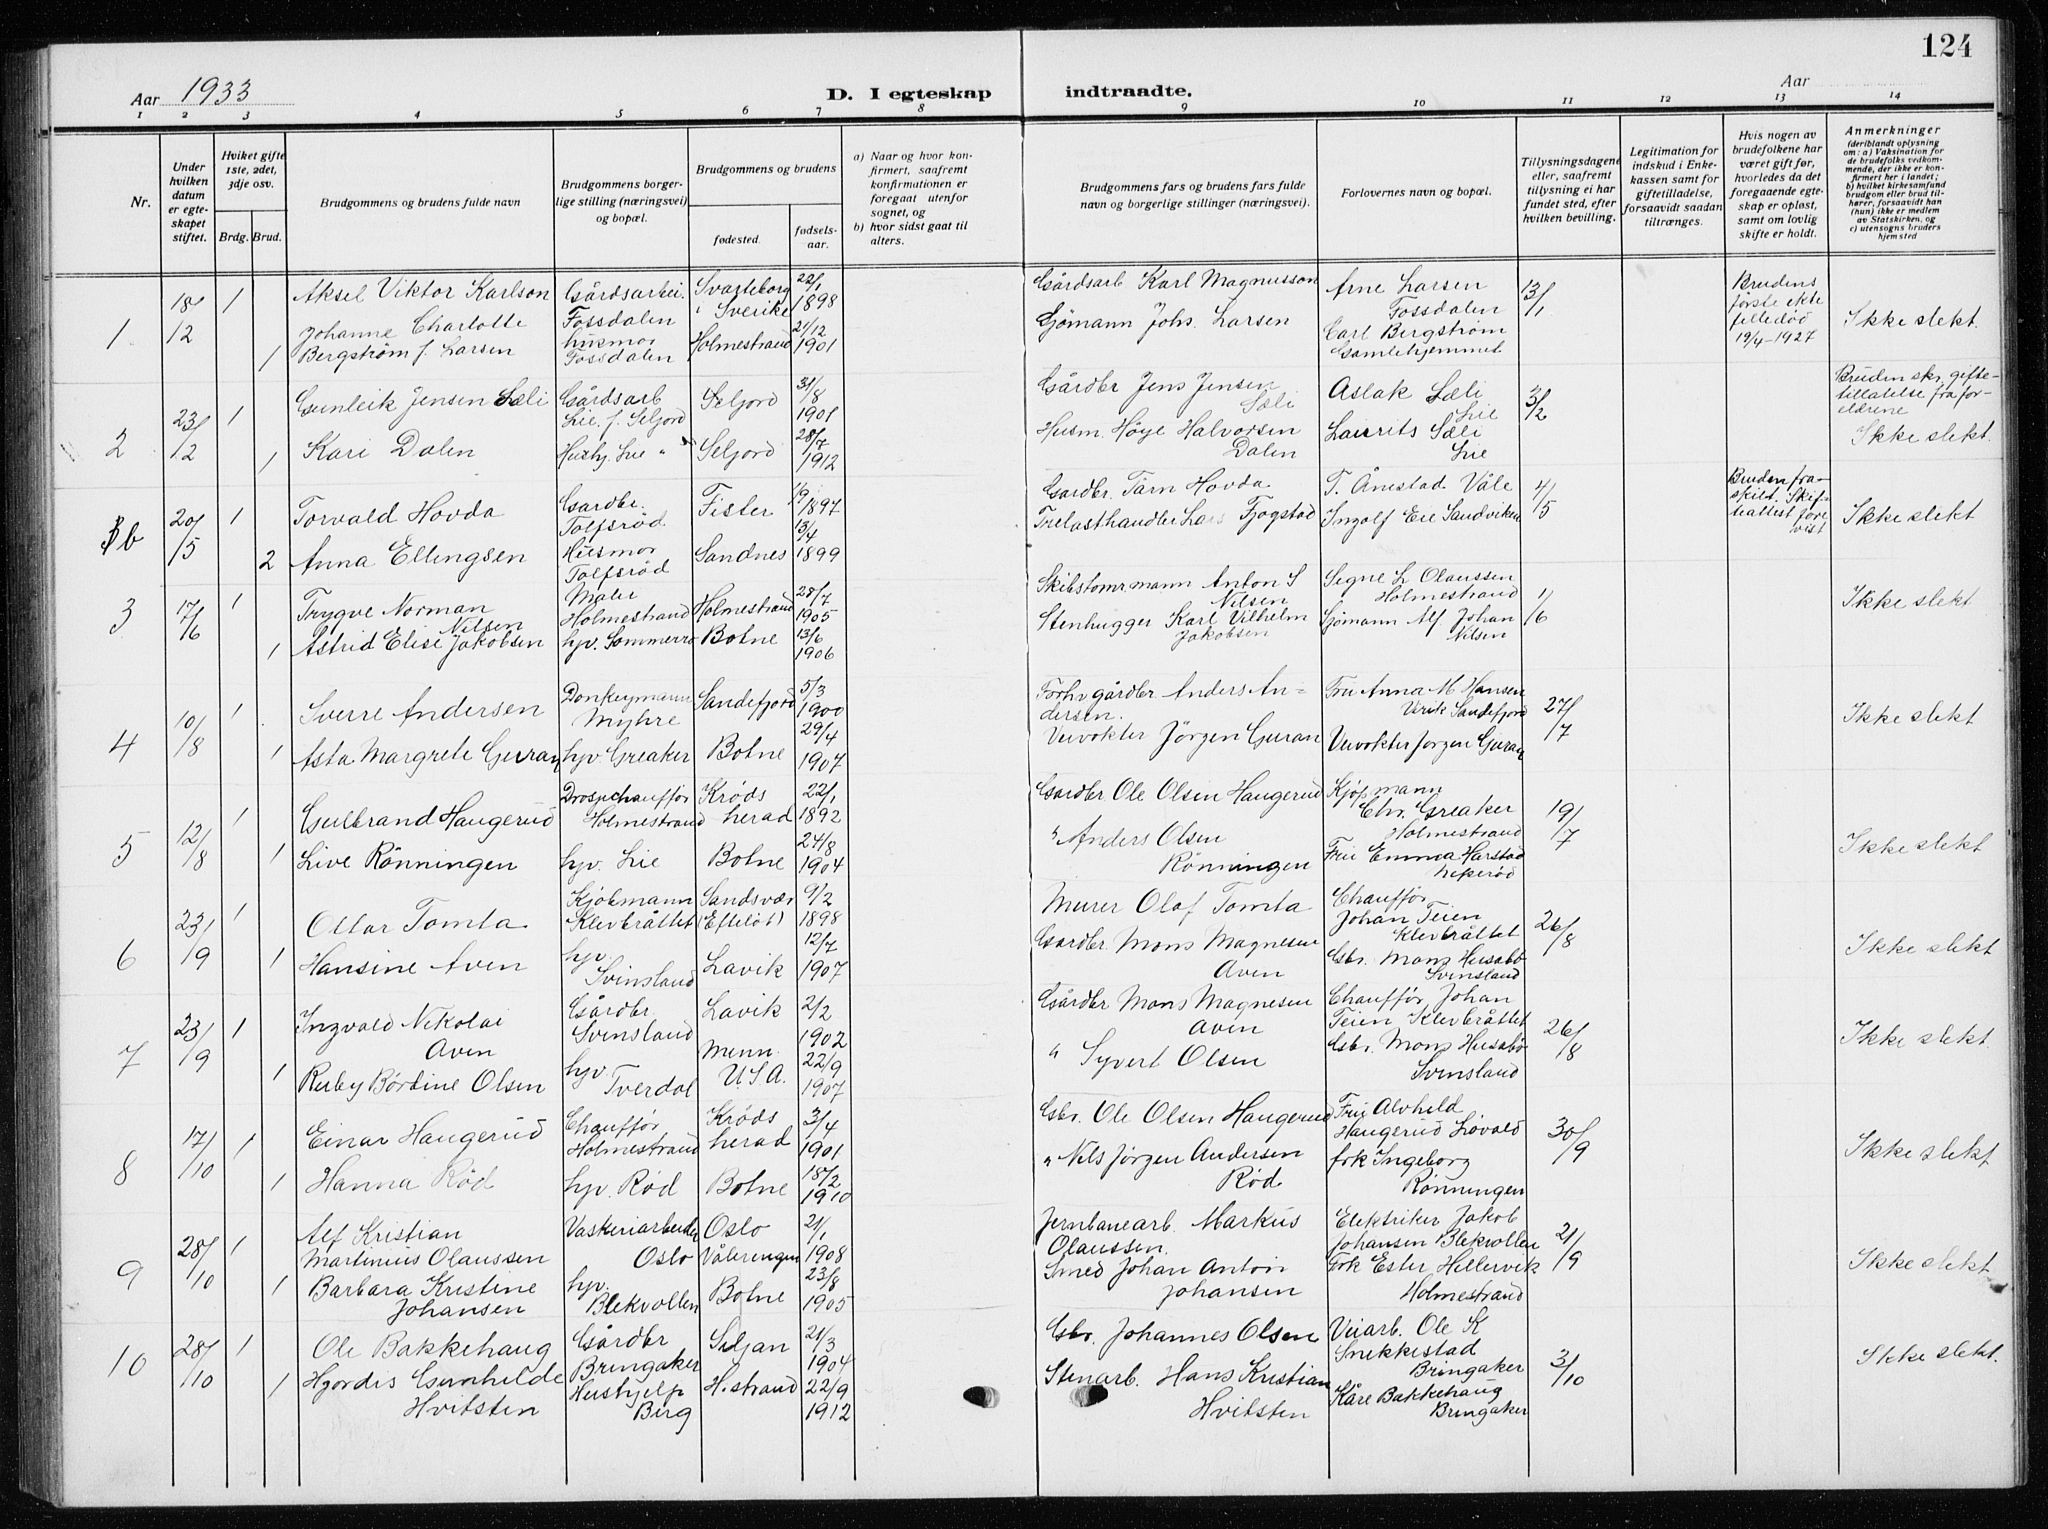 124
Aar 1933
D. I egteskap
indtraadte.
Aar
1 2 3 4 5 6 7 8 9 10 11 12 13 14
Nr.
Under
hvilken
datum
er egte-
skapet
stiftet.
Hviket gifte
1ste, 2det,
3dje osv.
Brdg. Brud.
Brudgommens og brudens fulde navn
Brudgommens borger-
lige stilling (næringsvei)
og bopæl.
Brudgommens og brudens
fødested.
fødsels-
aar.
a) Naar og hvor kon-
firmert, saafremt
konfirmationen er
foregaat utenfor
sognet, og
b) hvor sidst gaat til
alters.
Brudgommens fars og brudens fars fulde
navn og borgerlige stillinger (næringsvei).
Forlovernes navn og bopæl.
Tillysningsdagene
eller, saafremt
tillysning ei har
fundet sted, efter
hvilken bevilling.
Legitimation for
indskud i Enke-
kassen samt for
giftetilladelse,
forsaavidt saadan
tiltrænges.
Hvis nogen av
brudefolkene har
været gift før,
hvorledes da det
foregaaende egte-
skap er opløst,
samt om lovlig
skifte er holdt.
Anmerkninger
(deriblandt oplysning
om: a) Vaksination for
de brudefolks vedkom-
mende, der ikke er kon-
firmert her i landet;
b) hvilket kirkesamfund
brudgom eller brud til-
hører, forsaavidt han
(hun) ikke er medlem
av Statskirken, og
c) utensogns bruders
hjemsted
1
18/12
1
Aksel Viktor Karlson
Gårdsarbei.
Fossdalen
Svarteborg
i Sverike
22/1
1898
1
Johanne Charlotte
Bergstrøm f. Larsen
husmor
Fossdalen
Holmestrand
21/12
1901
Gårdsarb Karl Magnusson
Sjömann Johs. Larsen
Arne Larsen
Fossdalen
Carl Bergstrøm
Gamlehjemmet
13/1
Brudens
første ekte
felle død
19/4-1927
Ikke slekt.
2
23/12
1
Gunleik Jensen Sæli
Gårdsarb
Lie. f. Seljord
Seljord
31/8
1901
1
Kari Dalen
Hushj. Lie "
Seljord
28/7
1912
Gårdbr Jens Jensen
Sæli
Husm. Höye Halvorsen
Dalen
Aslak Sæli
Lie
Laurits Sæli
Lie
3/2
Bruden skr. gifte-
tillatelse fra for-
eldrene
Ikke slekt.
b
20/5
1
Torvald Hovda
Gardbr.
Tolfsröd
Fister
1/9
1897
2
Anna Ellingsen
Husmor
Tolfsröd
Sandnes
13/4
1899
Gardbr. Tärn Hovda
Trelasthandler Lars Fjogstad
T. Ånestad Våle
Ingolf Eie Sandviken
4/5
Bruden fra-
skilt. Skif-
teattest fore
vist
Ikke slekt
3
17/6
1
Trygve Norman
Nilsen
Maler
Holmestrand
Holmestrand
28/7
1905
1
Astrid Elise Jakobsen
hjv. Sommerro
Botne
13/6
1906
Skibstømrmann Anton S
Nilsen
Stenhugger Karl Vilhelm
Jakobsen
Signe L Olaussen
Holmestrand
Sjömann Alf Johan
Nilsen
1/6
Ikke slekt
4
10/8
1
Sverre Andersen
Donkeymann
Myhre
Sandefjord
5/3
1900
1
Asta Margrete Guran
hjv. Greaker
Botne
29/4
1907
Forhv gårdbr Anders An-
dersen.
Veivokter Jörgen Guran
Fru Anna M Hansen
Virik Sandefjord
Veivokter Jørgen Guran
27/7
Ikke slekt
5
12/8
1
Gulbrand Haugerud
Drosjechauffør
Holmestrand
Krøds
herad
22/1
1892
1
Live Rönningen
hjv. Lie
Botne
24/8
1904
Gardbr Ole Olsen Haugerud
" Anders Olsen
Rönningen
Kjøpmann
Chr. Greaker
Holmestrand
Fru Emma Harstad
19/7
Ikke slekt
6
23/9
1
Ottar Tomta
Kjöbmann
Klevbråttet
Sandsvær
(Efteløt)
9/2
1898
1
Hansine Aven
hjv.
Svinsland
Lavik
12/7
1907
Murer Olaf Tomta
Gardbr. Mons Magnesen
Aven
Chauffør
Johan Teien
Klevbråttet
Gbr. Mons Husabø
Svinsland
26/8
Ikke slekt
7
23/9
1
Ingvald Nikolai
Aven
Gårdbr
Svinsland
Lavik
2/2
1902
1
Ruby Børdine Olsen
hjv
Tverdal
Minn.
U.S.A.
22/9
1907
Gårdbr Mons Magnesen
Aven
" Syvert Olsen
Chauffør Johan
Teien Klevbråttet
Gbr. Mons Husabø
Svinsland
26/8
Ikke slekt.
8
17/10
1
Einar Haugerud
Chauffør
Holmestrand
Krøds
herad
3/4
1901
1
Hanna Röd
hjv. Röd
Botne
18/2
1910
Gbr. Ole Olsen Haugerud
" Nils Jörgen Andersen
Röd
Fru Alvhild
Haugerud Lövald
frk Ingeborg
Rönningen
30/9
Ikke slekt
9
28/10
1
Alf Kristian
Martinius Olaussen
Vaskeriarbeider
Oslo
Oslo
Vålerengen
2/1
1908
1
Barbara Kristine
Johansen
hjv.
Blekvollen
Botne
23/8
1905
Jernbanearb. Markus
Olaussen.
Smed Johan Anton
Johansen
Elektriker Jakob
Johansen Blekvollen
Frk Ester Hillervik
Holmestrand
21/9
Ikke slekt
10
28/10
1
Ole Bakkehaug
Gårdbr
Bringaker
Siljan
21/3
1904
1
Hjordis Gunhilde
Hvitsten
Hushjelp
Berg
H.strand
22/9
1912
Gbr. Johannes Olsen
Stenarb. Hans Kristian
Hvitsten
Veiarb. Ole K
Snekkestad
Bringaker
Kåre Bakkehaug
Bringaker
3/10
Ikke slekt.